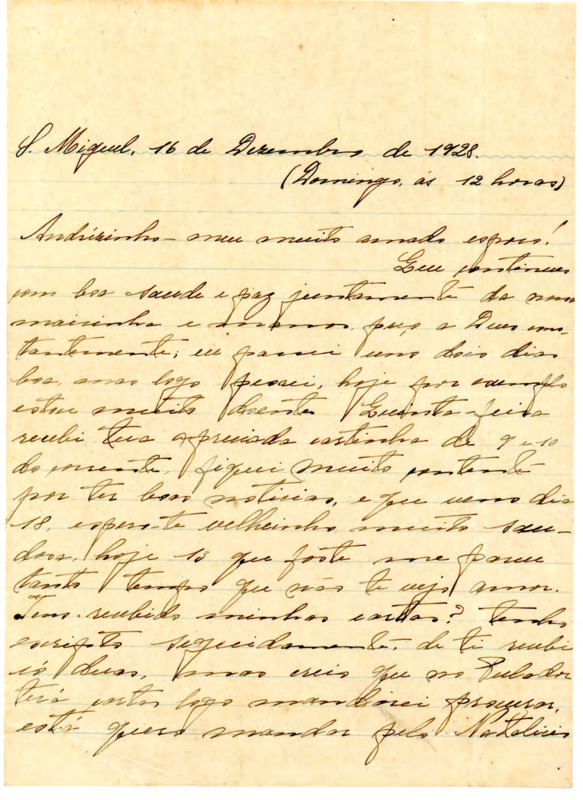 S. Miguel, 16 de Dezembro de 1928.
(Domingo, ás 12 horas)
Andrézinho - meu muito amado esposo!
Que continues
com boa saude e paz juntamente da nossa
mãisinha e manos peço a Deus cons-
tantemente; eu passei uns dois dias
boa, mas logo peorei, hoje por exemplo
estou muito doente. Quinta-feira
recebi tua apreciada cartinha de 9 e 10
do corrente, fiquei muito contente
por ter boas noticias, e que vens dia
18, espero-te velhinho muito sau-
dosa, hoje que foste me parece
tanto tempo que não te vejo amor.
Tens recebido minhas cartas? tenho
escripto seguidamente, de ti recebi
só duas, mas creio que no Pulador
terá cartas logo mandarei procurar,
esta quero mandar pelo Natalicio